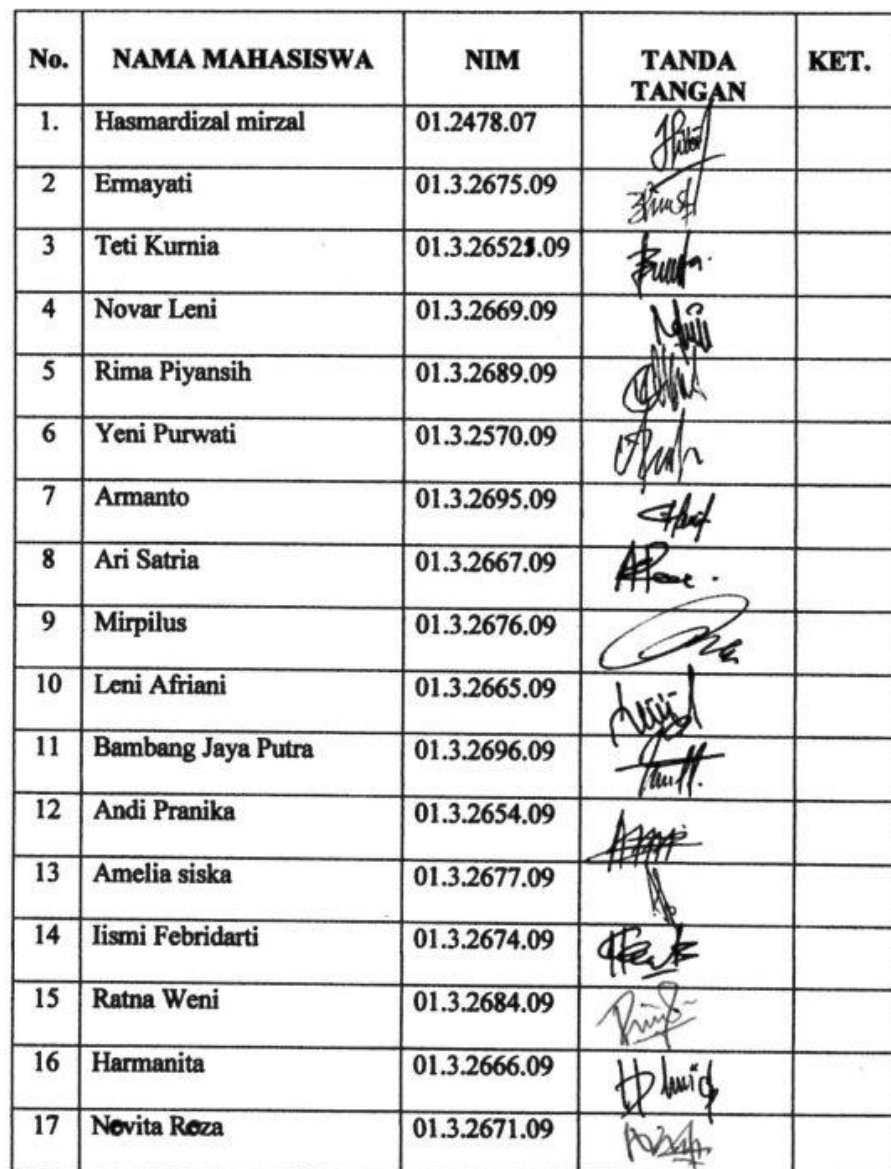 No. NAMA MAHASISWA NIM TANDA TANGAN KET.
1. Hasmardizal mirzal 01.2478.07
2 Ermayati 01.3.2675.09
3 Teti Kurnia 01.3.26521.09
4 Novar Leni 01.3.2669.09
5 Rima Piyansih 01.3.2689.09
6 Yeni Purwati 01.3.2570.09
7 Armanto 01.3.2695.09
8 Ari Satria 01.3.2667.09
9 Mirpilus 01.3.2676.09
10 Leni Afriani 01.3.2665.09
11 Bambang Jaya Putra 01.3.2696.09
12 Andi Pranika 01.3.2654.09
13 Amelia siska 01.3.2677.09
14 Iismi Febridarti 01.3.2674.09
15 Ratna Weni 01.3.2684.09
16 Harmanita 01.3.2666.09
17 Novita Roza 01.3.2671.09